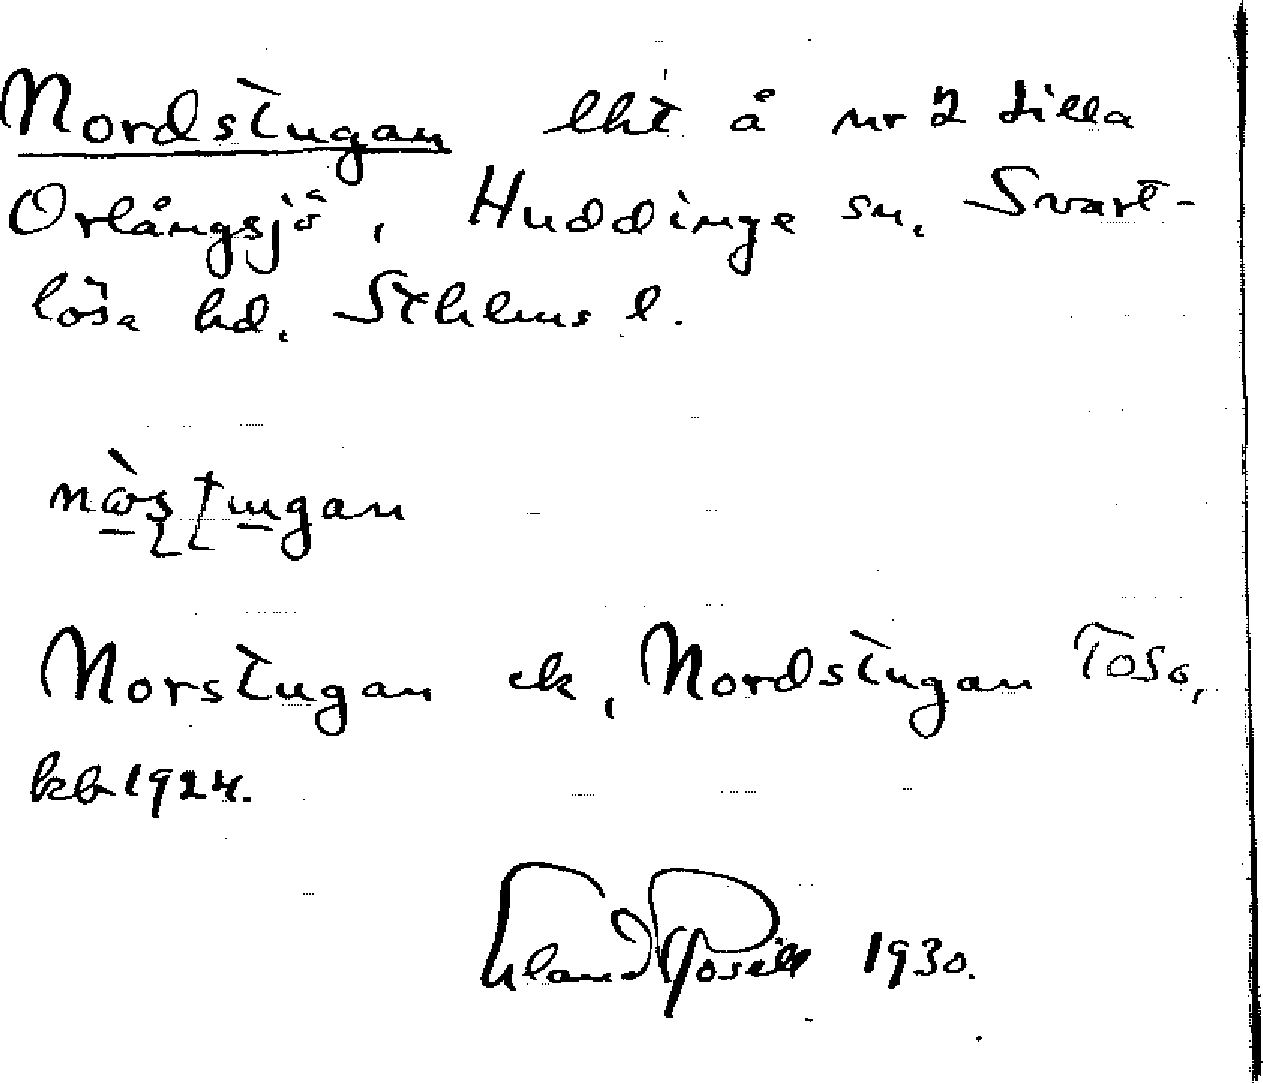 Nordstugan lht å nr 2 Lilla
Orlångsjö, Huddinge sn. Svart-
lösa hd. Sthlms l.
Norstugan ek, Nordstugan
kb 1924.
Erland Rosell 1930.